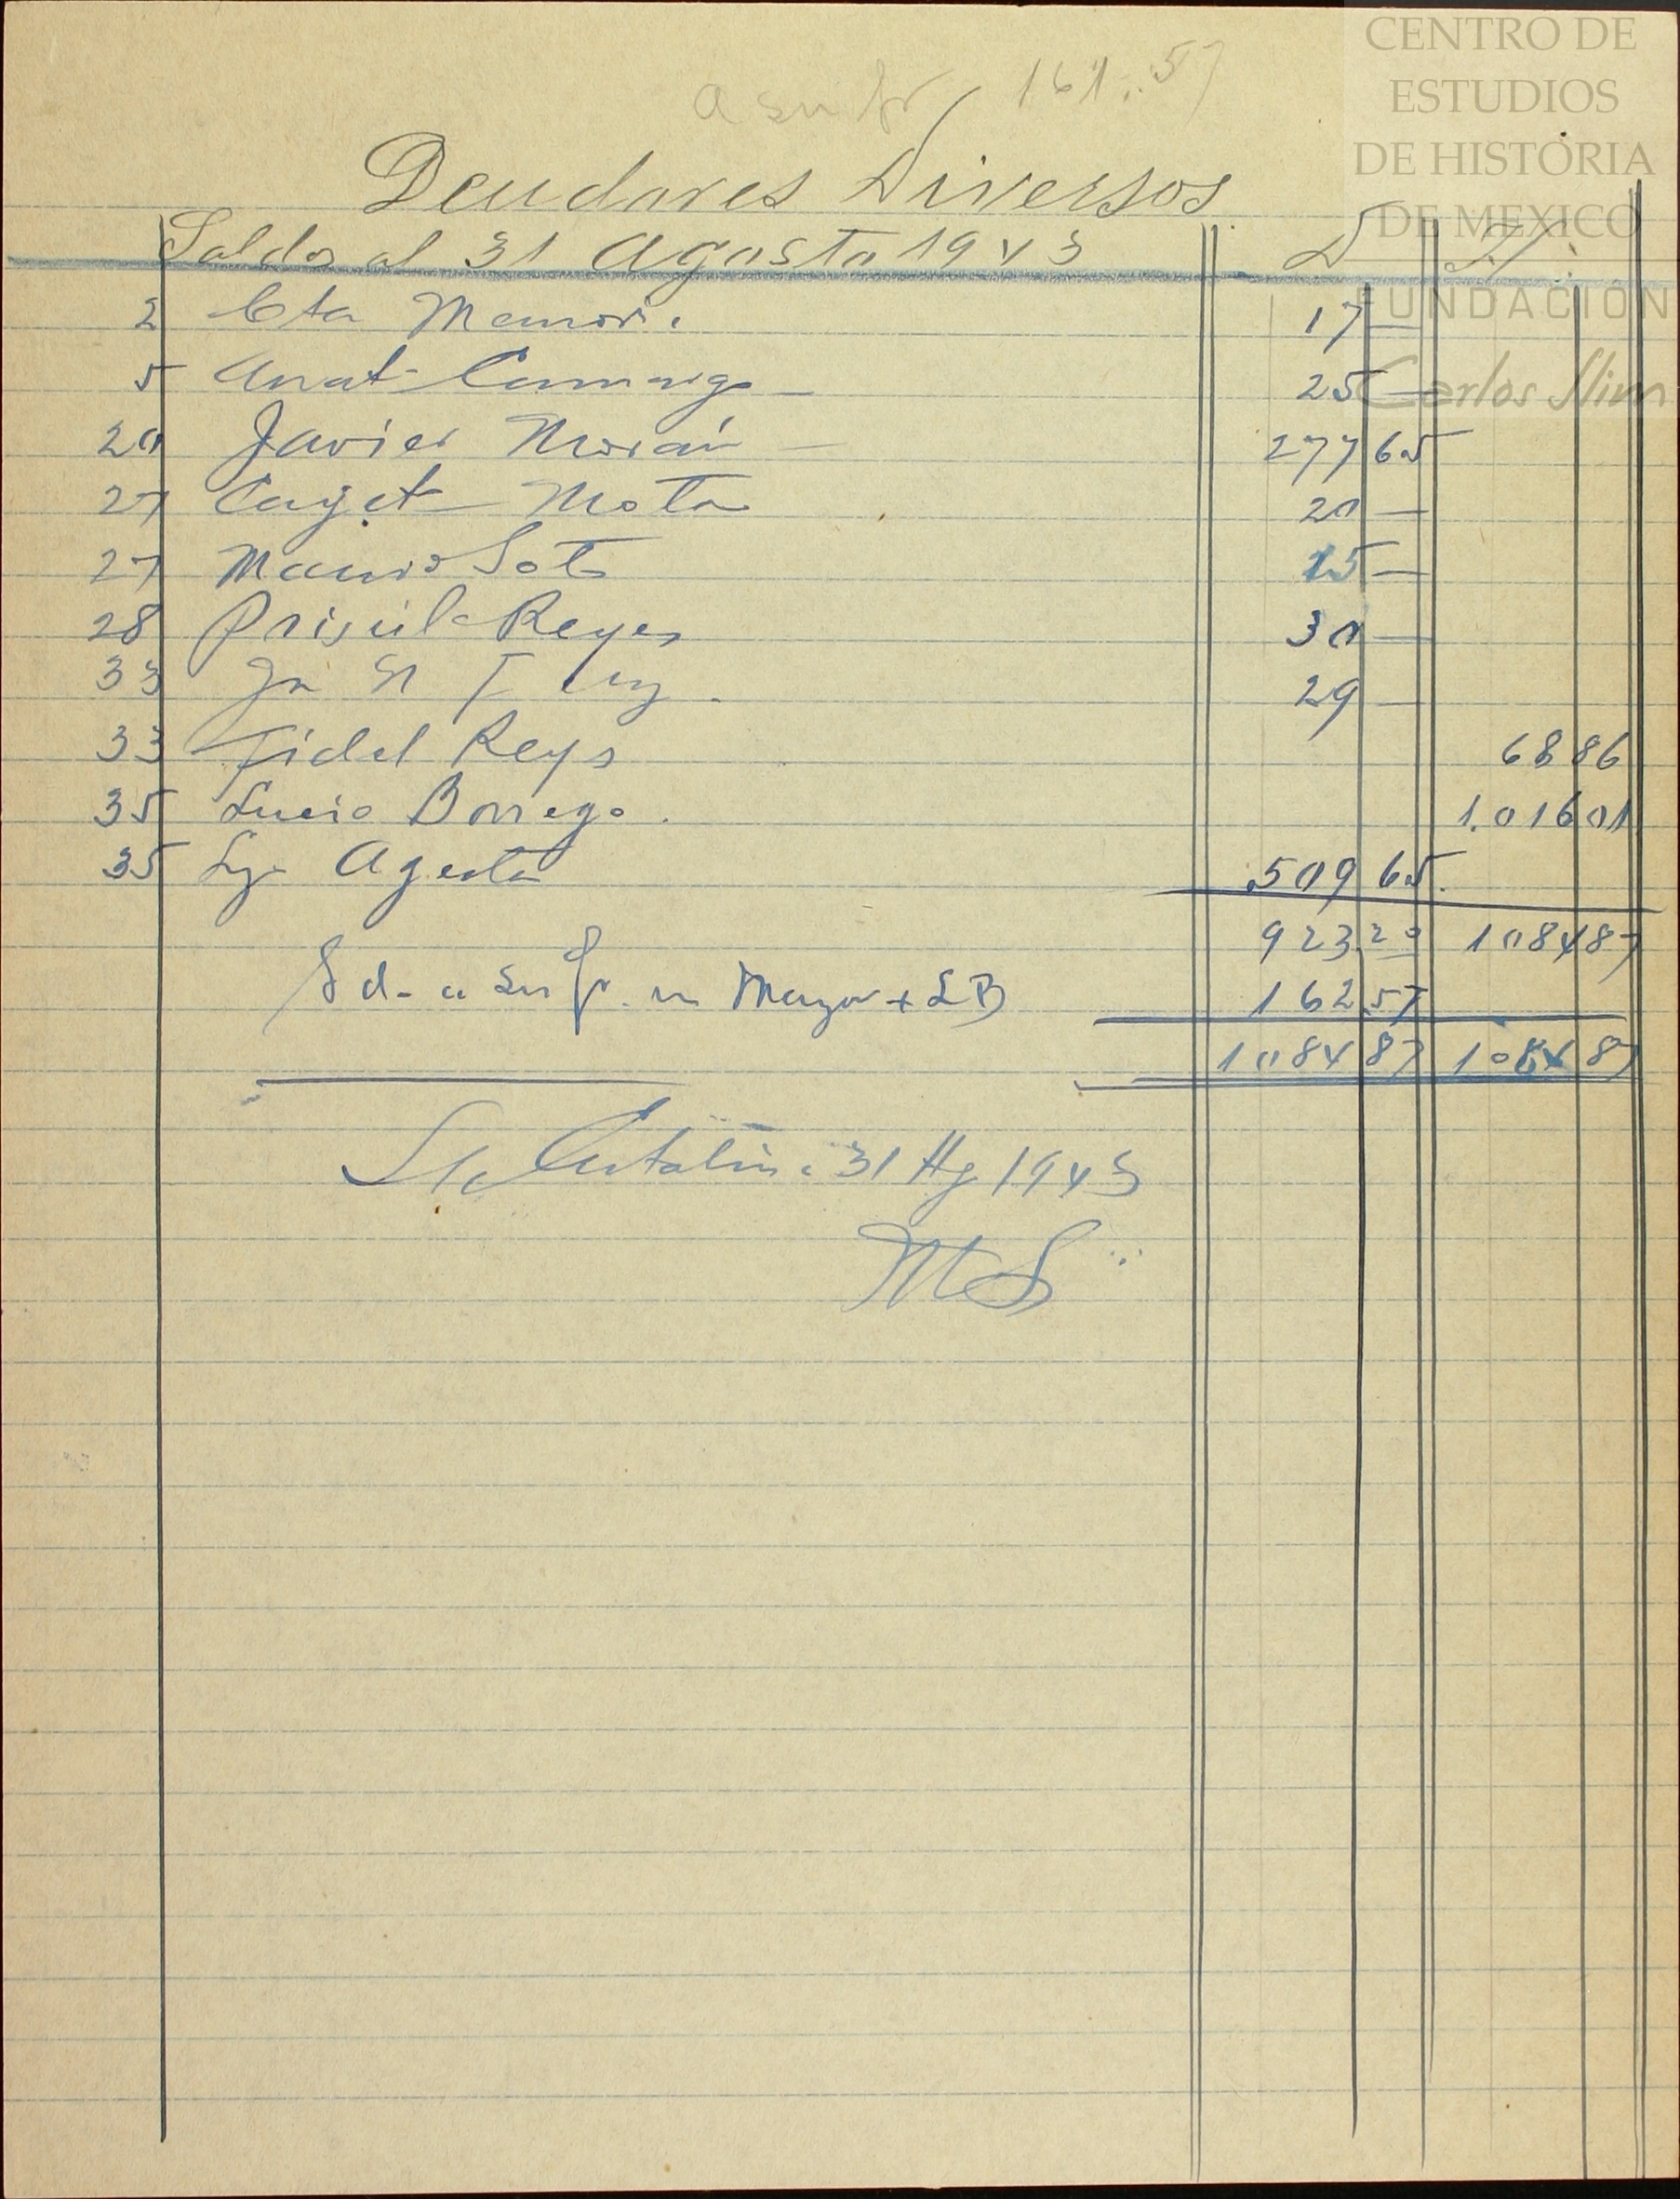 CENTRO DE
ESTUDIOS
DE HISTORIA
DE MEXICO
FUNDACIÓN
Carlos Slim
a su fr 161.57
Deudores Diversos
Saldos al 31 Agosto 1943 D H
2 Cta Memori. 17 —
5 Anat Camargo — 25 —
20 Javier Morán — 277 65
27 Cayet Mota 20 —
27 Mauro Soto 15 —
28 Priscil Reyes 30 —
33 29 —
33 Fidel Reys 68 86
35 Lucio Borrego. 1.016 01
35 Agosto 509 65.
923 20 1084 87
Sd- a su fr. en Mayor + LB 162 57
1084 87 1084 87
Sta Catalina 31 Ag 1943
MS